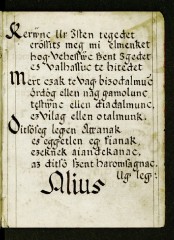 Kerÿnc Ur Isten tegedet
erossits meg mi elmenket
hog Vehessüc Szent Igedet
es Valhassuc te hitedet
Mert czak te Vag bizodalmuc
ördög ellen nag gamolunc
testünc ellen diadalmunc,
ez Vilag ellen otalmunk.
Ditsöseg legen Attanak
es eggetlen eg fianak,
ezeknek aiandekanac,
az ditső Szent haromsagnac.
Ug leg:
Alius